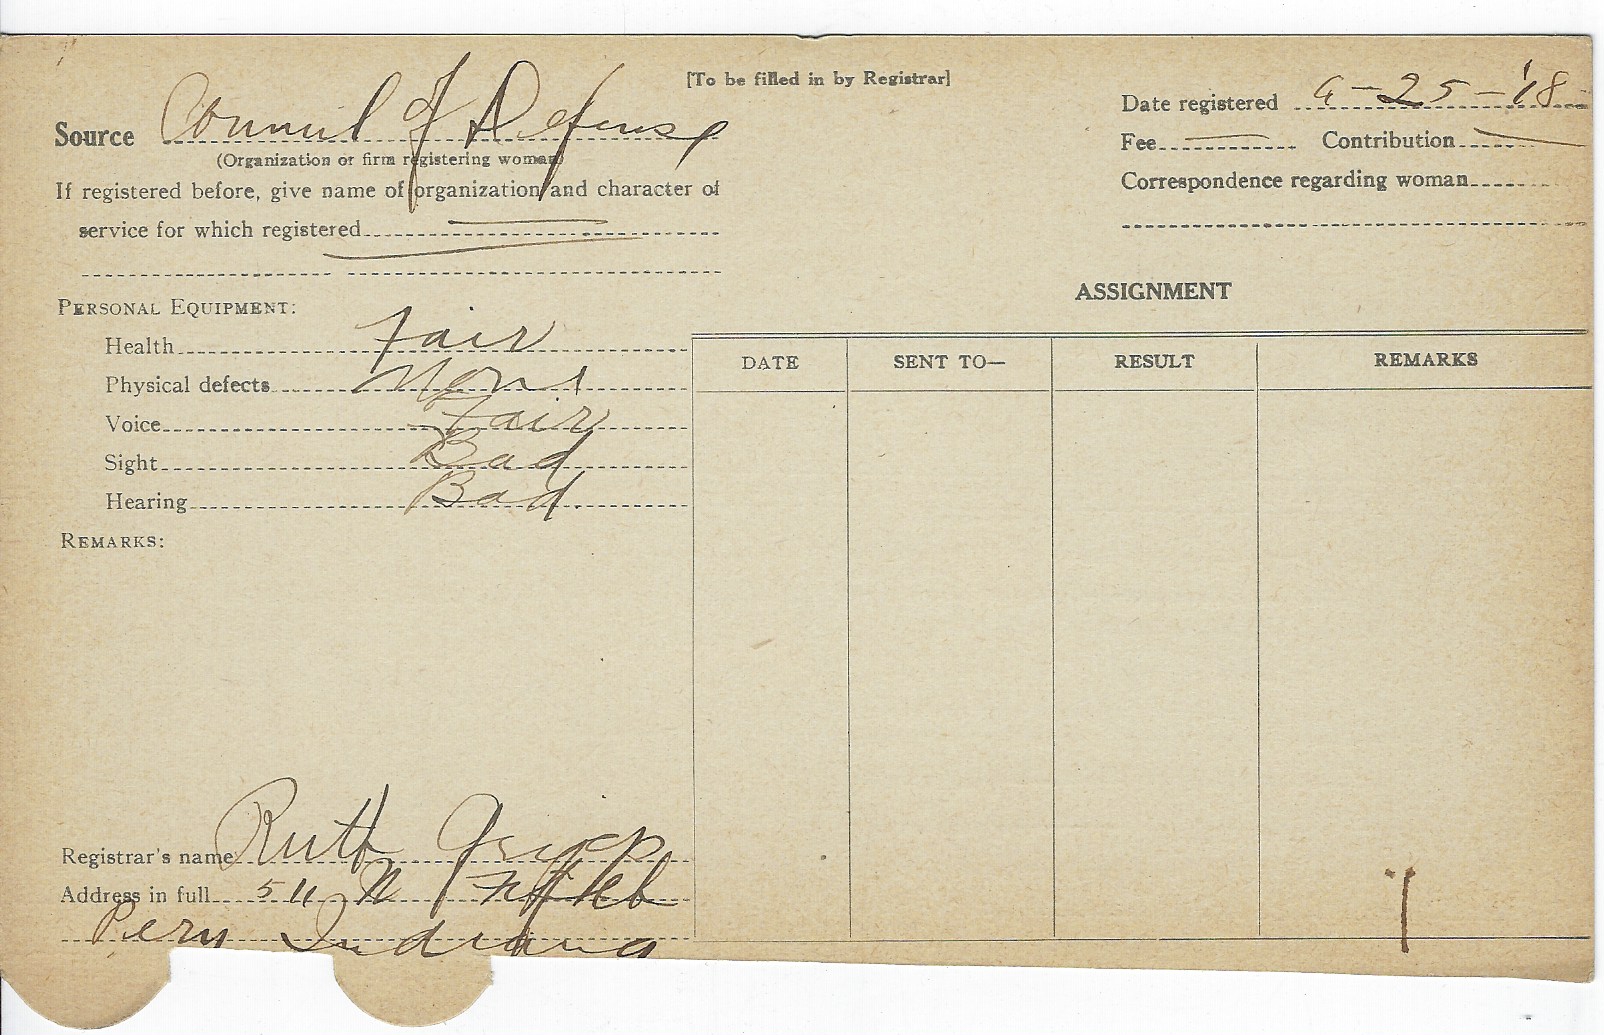 [To be filled in by Registrar]
Source Council of Defense
(Organization or firm registering woman)
If registered before, give name of organization and character of
service for which registered
Date registered 4-25-'18
Fee Contribution
Correspondence regarding woman
PERSONAL EQUIPMENT:
Health Fair
Physical defects None
Voice Fair
Sight Bad
Hearing Bad
REMARKS:
ASSIGNMENT
DATE SENT TO— RESULT REMARKS
Registrar's name Ruth
Address in full 511 N
Peru Indiana